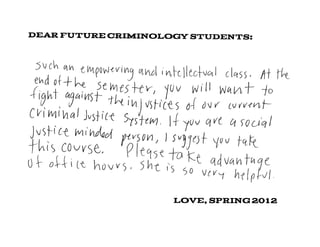 DEAR FUTURE CRIMINOLOGY STUDENTS:
Such an empowering and intellectual class. At the
end of the semester, you will want to
fight against the injustices of our current
Criminal Justice System. If you are a social
justice minded person, I suggest you take
this course. Please take advantage
of office hours. She is so very helpful.
LOVE, SPRING 2012